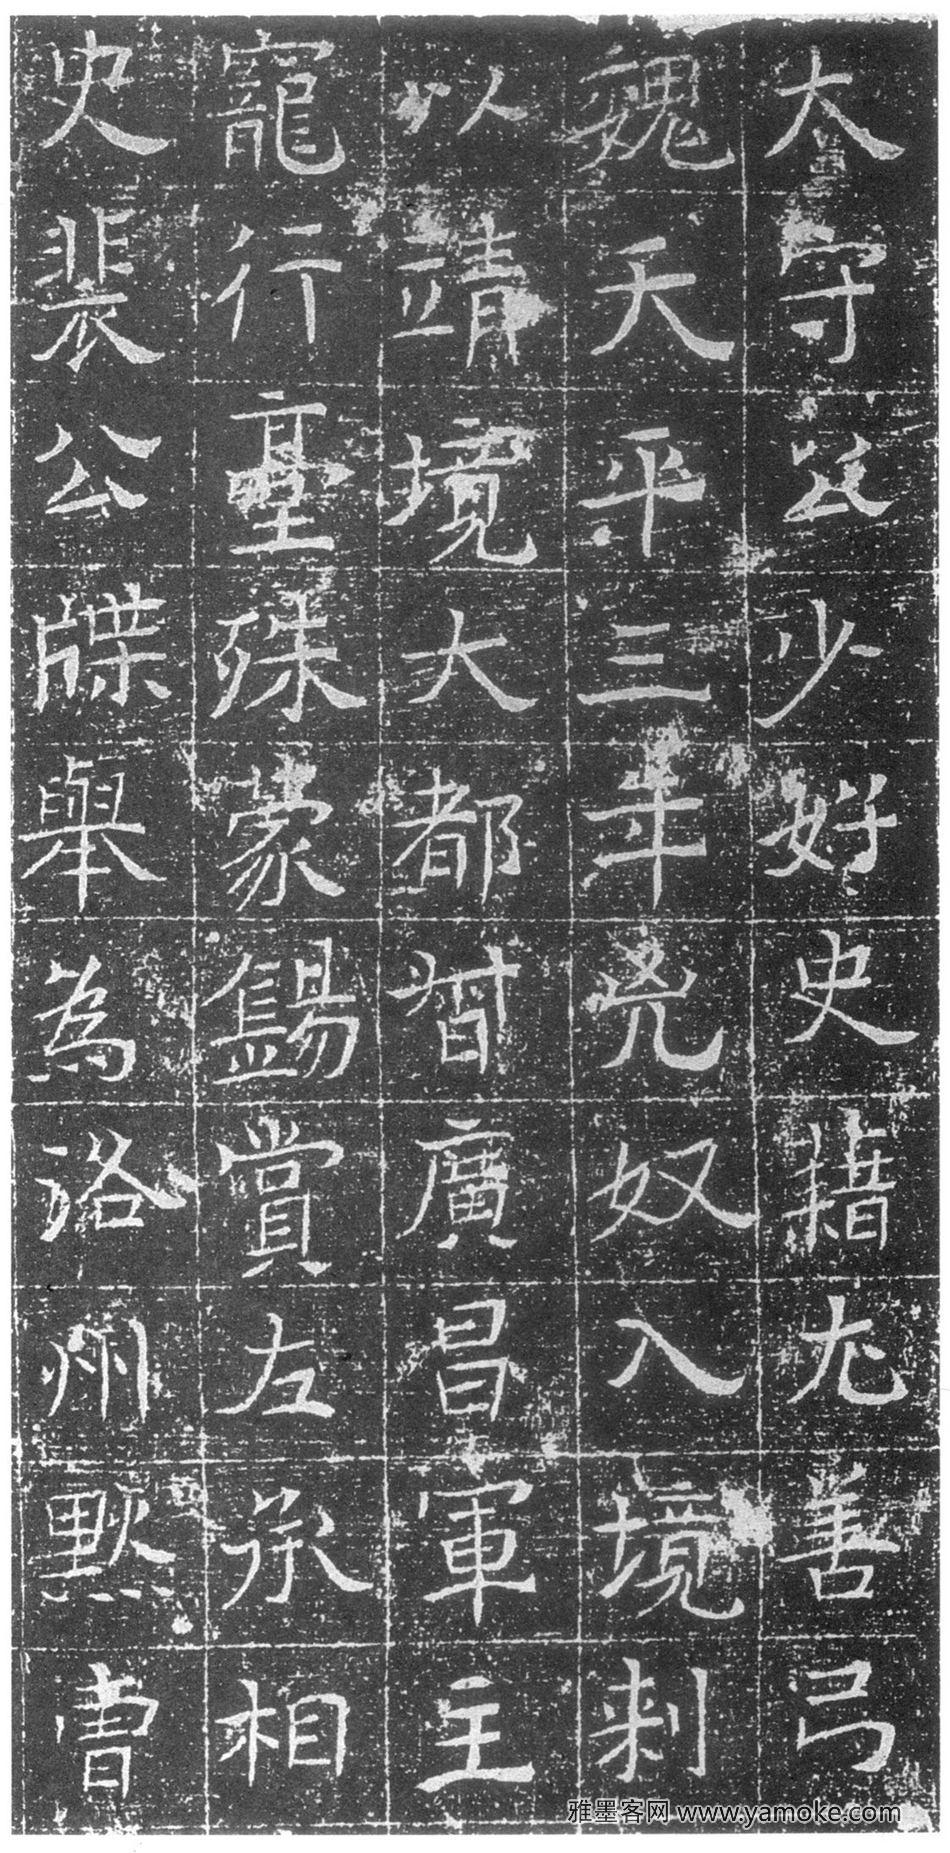 太守公少好史藉尤善弓
魏天平三年兇奴入境刺
以靖境大都督廣昌軍主
寵行臺殊蒙錫賞左丞相
史裴公牒舉為洛州默曹
雅墨客网 www.yamoke.com